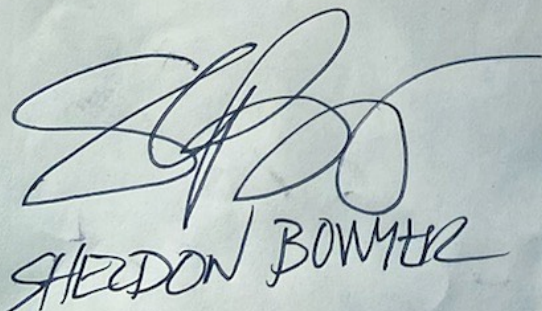 SHELDON BOWYER